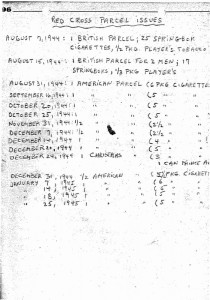 96
RED CROSS PARCEL ISSUES
AUGUST 7, 1944 : 1 BRITISH PARCEL; 25 SPRINGBOK
CIGARETTES, 1/2 PKG PLAYER'S TOBACCO
AUGUST 15, 1944 : 1 BRITISH PARCEL FOR 2 MEN; 17
SPRINGBOKS, 1/3 PKG PLAYER'S
AUGUST 31, 1944 : 1 AMERICAN PARCEL (6 PKG CIGARETTE
SEPTEMBER 1944 : 1 " " (5 "
OCTOBER 20, 1944 : 1 " " (5 "
OCTOBER 25, 1944 : 1 " " (5 "
NOVEMBER 31, 1944 1/2 " " (2 1/2 "
DECEMBER 1944 1/2 " " (2 1/2 "
DECEMBER 14, 1944 1 " " (4 "
DECEMBER 20, 1944 1 " " (5 "
DECEMBER 24, 1944 1 " (3 "
1 CAN PRINCE A
DECEMBER 30, 1944 1/2 AMERICAN " (5) PKG CIGARETT
JANUARY 7, 1945 1 " " (6 "
" 1945 1 " " (5 "
" 18, 1945 1 " " (5 "
" 25, 1945 1 " " (5 "